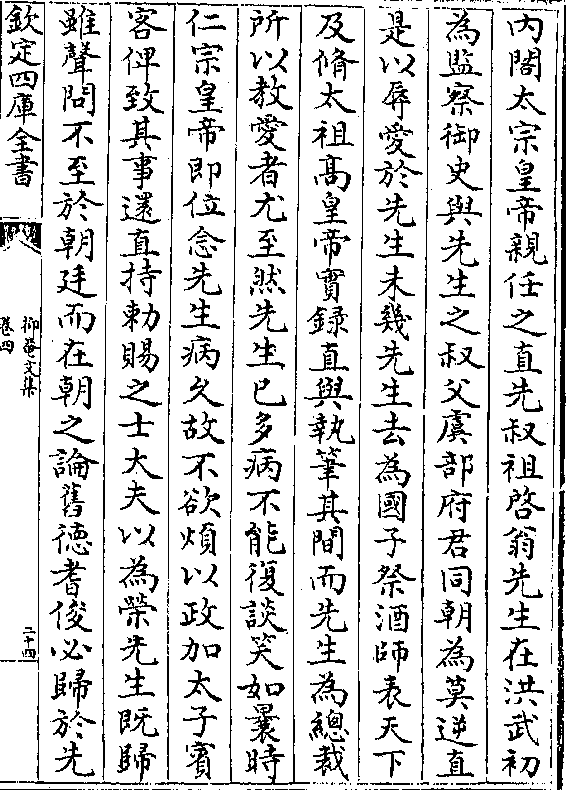 內閣太宗皇帝親任之直先叔祖啓翁先生在洪武初
為監察御史與先生之叔父虞部府君同朝為莫逆直
是以辱愛於先生未幾先生去為國子祭酒師表天下
及脩太祖髙皇帝實録直與執筆其間而先生為總裁
所以教愛者尤至然先生已多病不能復談笑如曩時
仁宗皇帝即位念先生病乆故不欲煩以政加太子賓
客俾致其事還直持勅賜之士大夫以為榮先生既歸
雖聲問不至於朝廷而在朝之論舊徳耆俊必歸於先
欽定四庫全書
抑菴文集
卷四
二十四